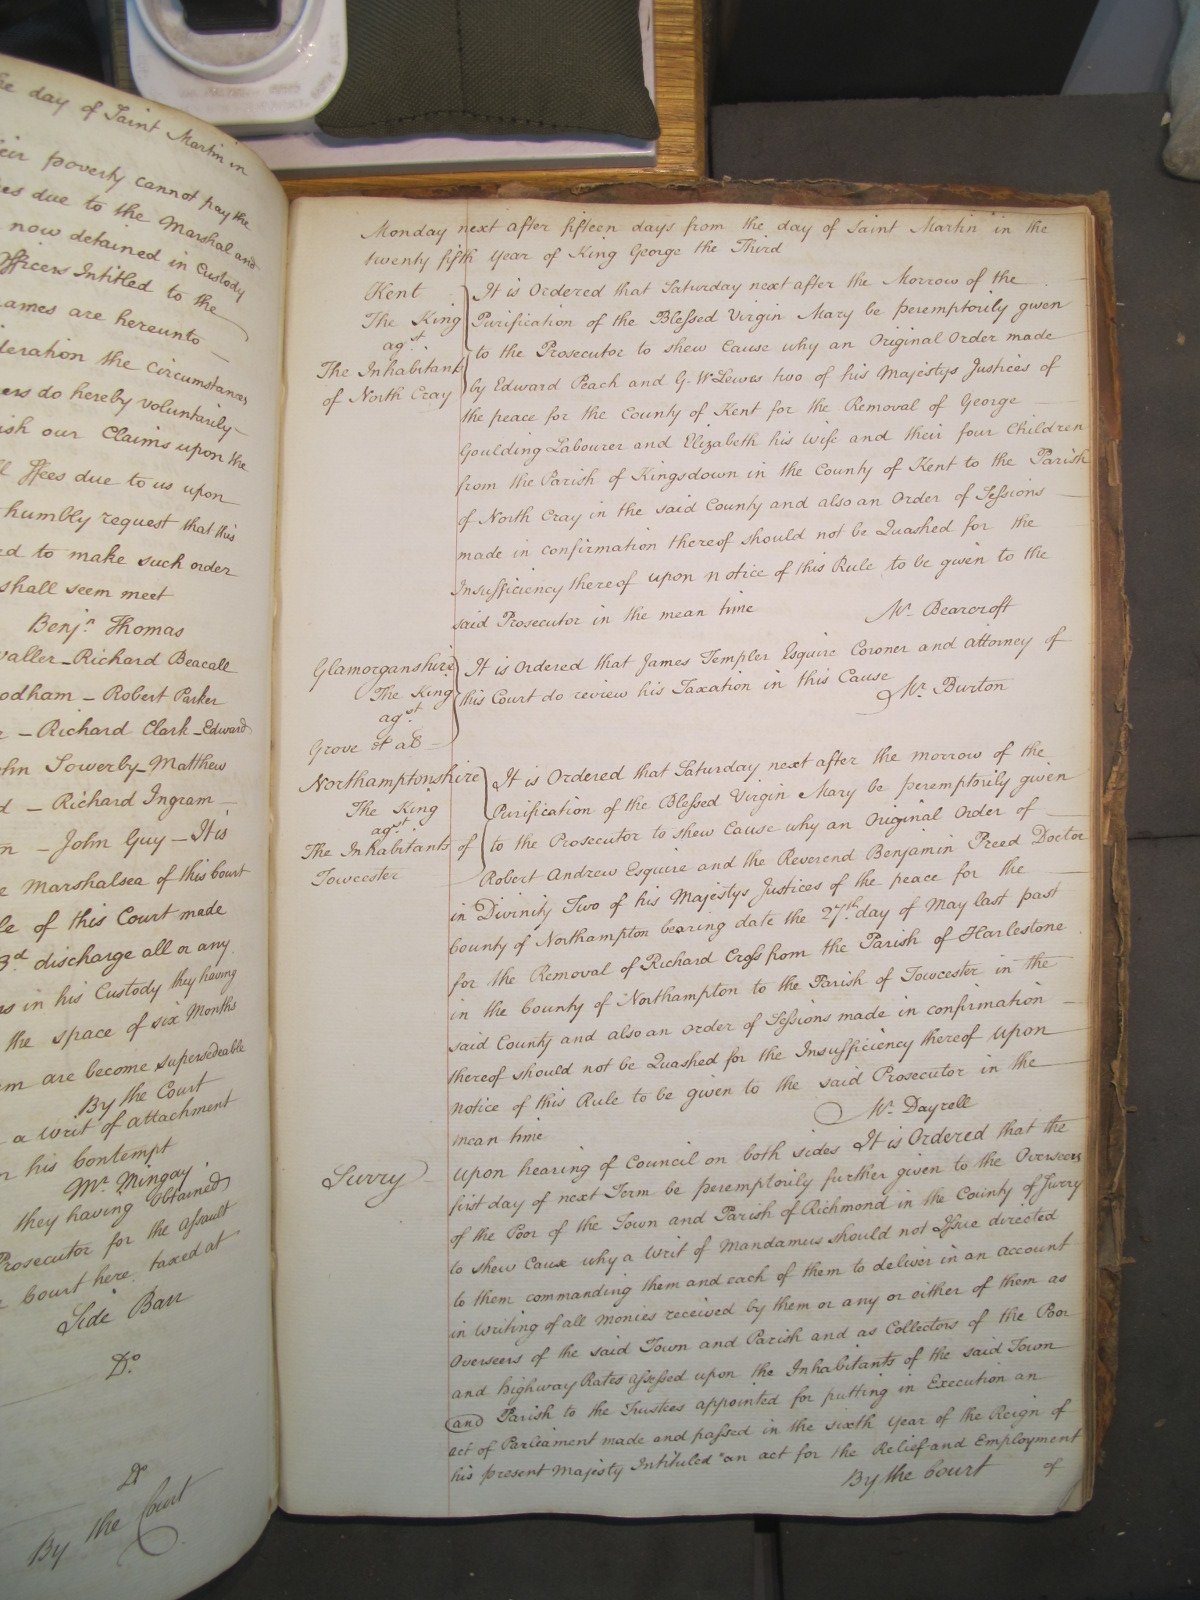 he day of Saint Martin in
eir poverty cannot pay the
es due to the Marshal and
now detained in Custody
fficers Intitled to the
ames are hereunto —
deration the circumstances
ers do hereby voluntarily
ish our Claims upon the
ll ffees due to us upon
humbly request that this
ed to make such order
shall seem meet
Benj.n Thomas
waller – Richard Beacall
odham – Robert Parker
– Richard Clark – Edward
ohn Sowerby – Matthew
d – Richard Ingram –
n – John Guy – It is
e Marshalsea of this Court
le of this Court made
3.d discharge all or any
rs in his Custody they having
the space of six Months
em are become supersedeable
By the Court
a Writ of attachment
r his Contempt
Mr. Mingay
they having obtained
Prosecutor for the assault
e Court here taxed at
Side Barr
D.o
D.o
By the Court
Monday next after fifteen days from the day of Saint Martin in the
twenty fifth year of King George the Third
Kent
The King
ag.st
The Inhabitants
of North Cray
It is Ordered that Saturday next after the Morrow of the
Purification of the Blessed Virgin Mary be peremptorily given
to the Prosecutor to shew Cause why an Original Order made
by Edward Peach and G. W Lewis two of his Majestys Justices of
the peace for the County of Kent for the Removal of George —
Goulding Labourer and Elizabeth his Wife and their four Children
from the Parish of Kingsdown in the County of Kent to the Parish
of North Cray in the said County and also an Order of Sessions —
made in confirmation thereof should not be Quashed for the
Insufficiency thereof upon notice of this Rule to be given to the
said Prosecutor in the mean time
Mr. Bearcroft
Glamorganshire
The King
ag.st
Grove et als
It is Ordered that James Templer Esquire Coroner and attorney of
this Court do review his Taxation in this Cause
Mr. Burton
Northamptonshire
The King
ag.st
The Inhabitants of
Towcester
It is Ordered that Saturday next after the morrow of the
Purification of the Blessed Virgin Mary be peremptorily given
to the Prosecutor to shew Cause why an Original Order of —
Robert Andrew Esquire and the Reverend Benjamin Preed Doctor
in Divinity Two of his Majestys Justices of the peace for the —
County of Northampton bearing date the 27.th day of May last past
for the Removal of Richard Cross from the Parish of Harlestone
in the County of Northampton to the Parish of Towcester in the
said County and also an Order of Sessions made in confirmation —
thereof should not be Quashed for the Insufficiency thereof upon
notice of this Rule to be given to the said Prosecutor in the
mean time
Mr. Dayrell
Surry
Upon hearing of Council on both sides It is Ordered that the
first day of next Term be peremptorily further given to the Overseers
of the Poor of the Town and Parish of Richmond in the County of Surry
to shew Cause why a Writ of Mandamus should not Issue directed
to them commanding them and each of them to deliver in an account
in writing of all monies received by them or any or either of them as
Overseers of the said Town and Parish and as Collectors of the Poor
and highway Rates assessed upon the Inhabitants of the said Town
and Parish to the Trustees appointed for putting in Execution an
act of Parliament made and passed in the sixth year of the Reign of
his present Majesty Intituled "an act for the Relief and Employment
By the Court
of